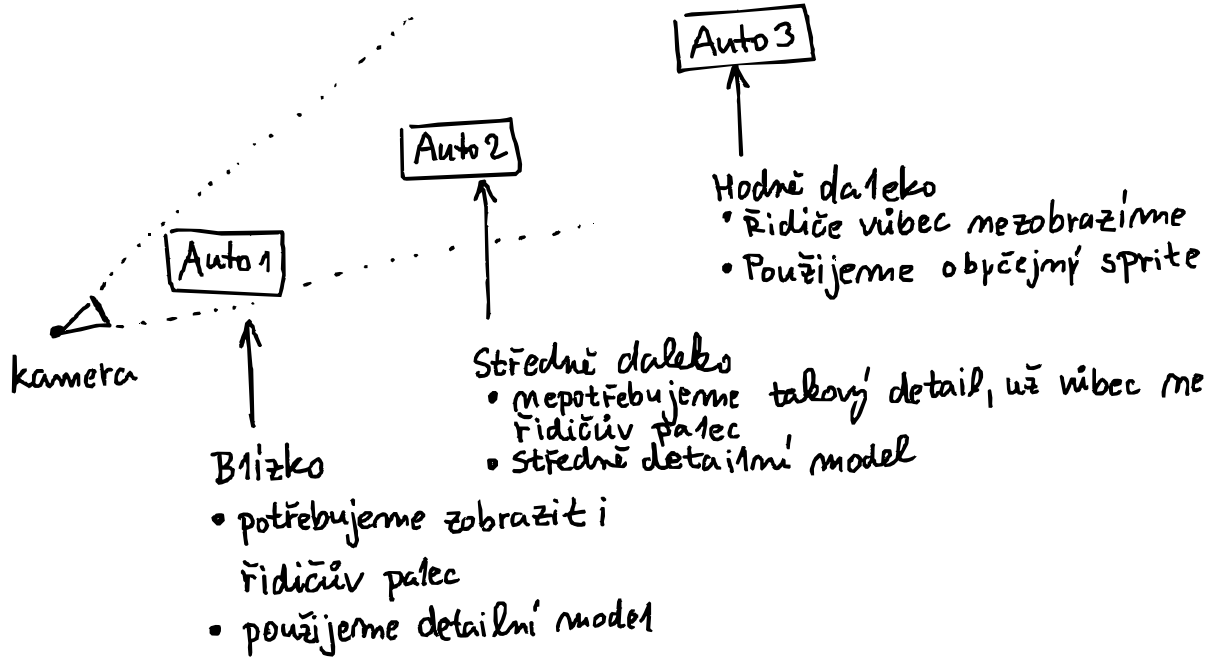 Auto 3
Auto 2
Auto 1
kamera
Hodně daleko
• Řidiče vůbec nezobrazíme
• Použijeme obyčejný sprite
Středně daleko
• nepotřebujeme takový detail, už vůbec ne
řidičův palec
• středně detailní model
Blízko
• potřebujeme zobrazit i
řidičův palec
• použijeme detailní model